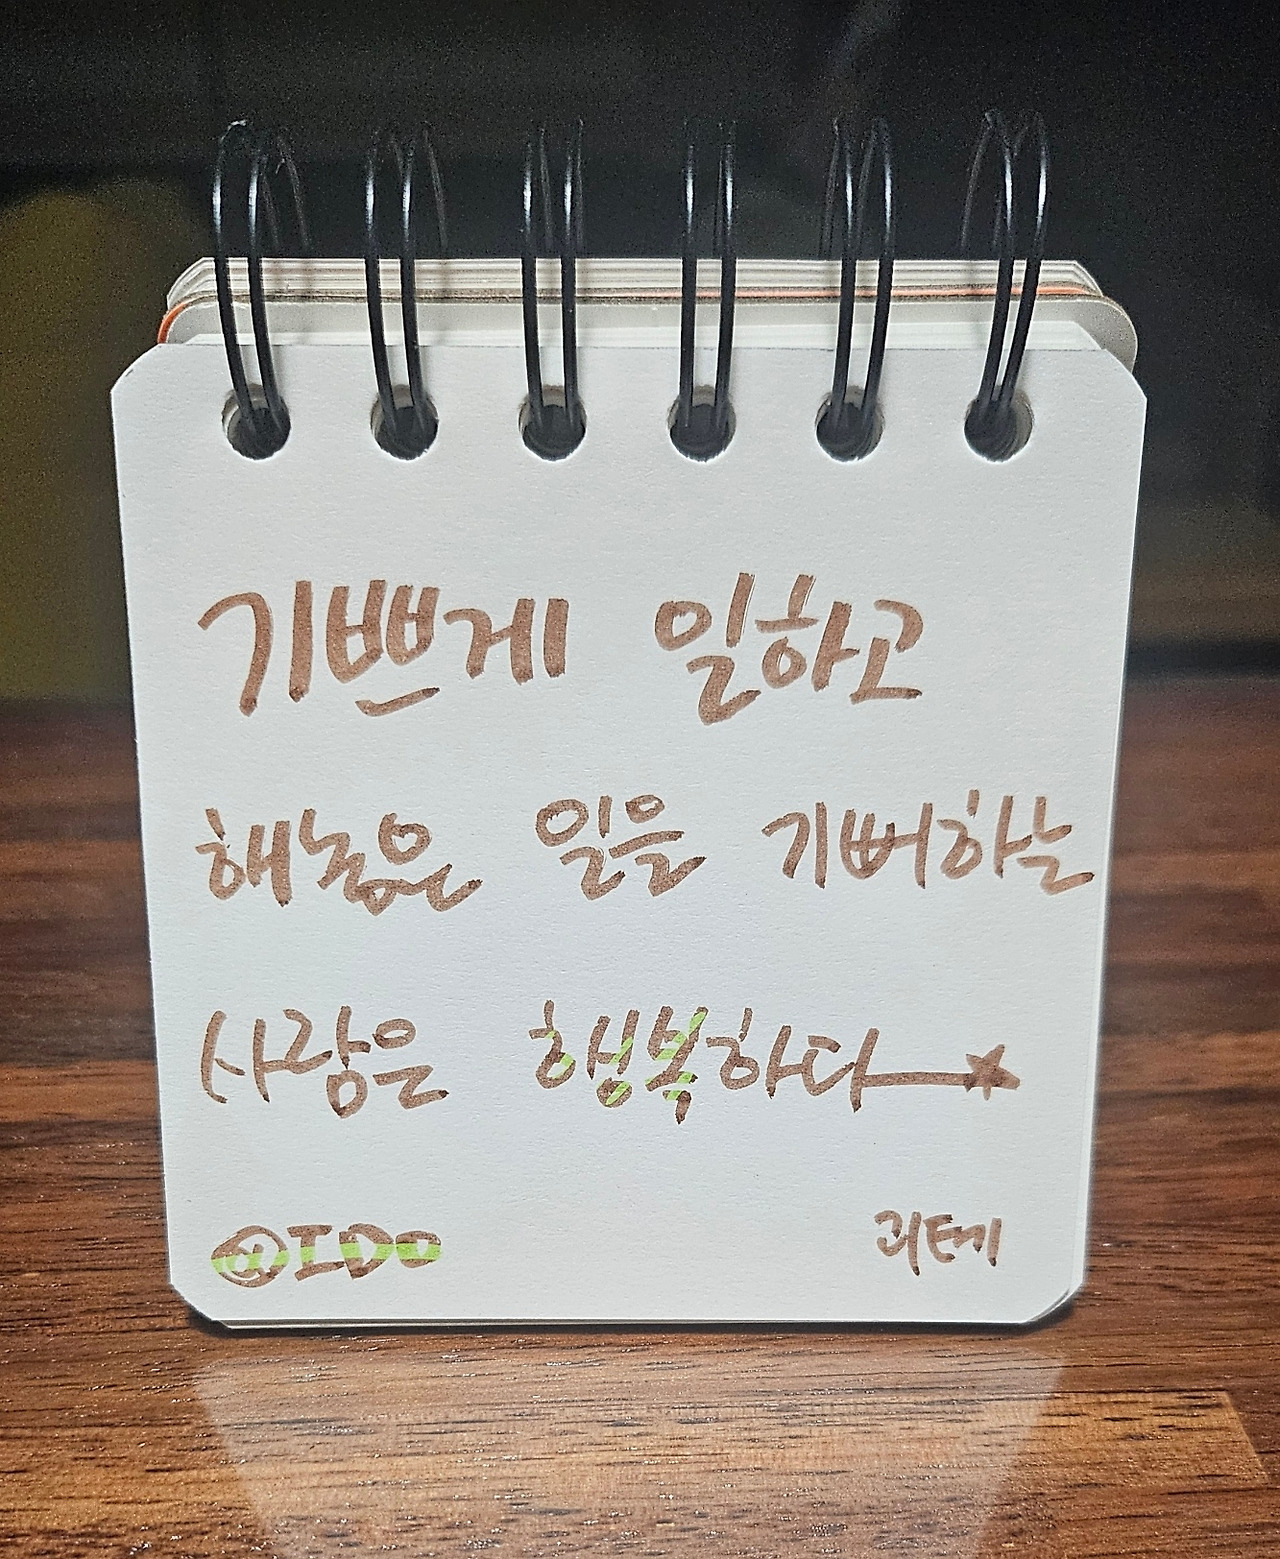 기쁘게 일하고
해놓은 일을 기뻐하는
사람은 행복하다
@IDO
괴테